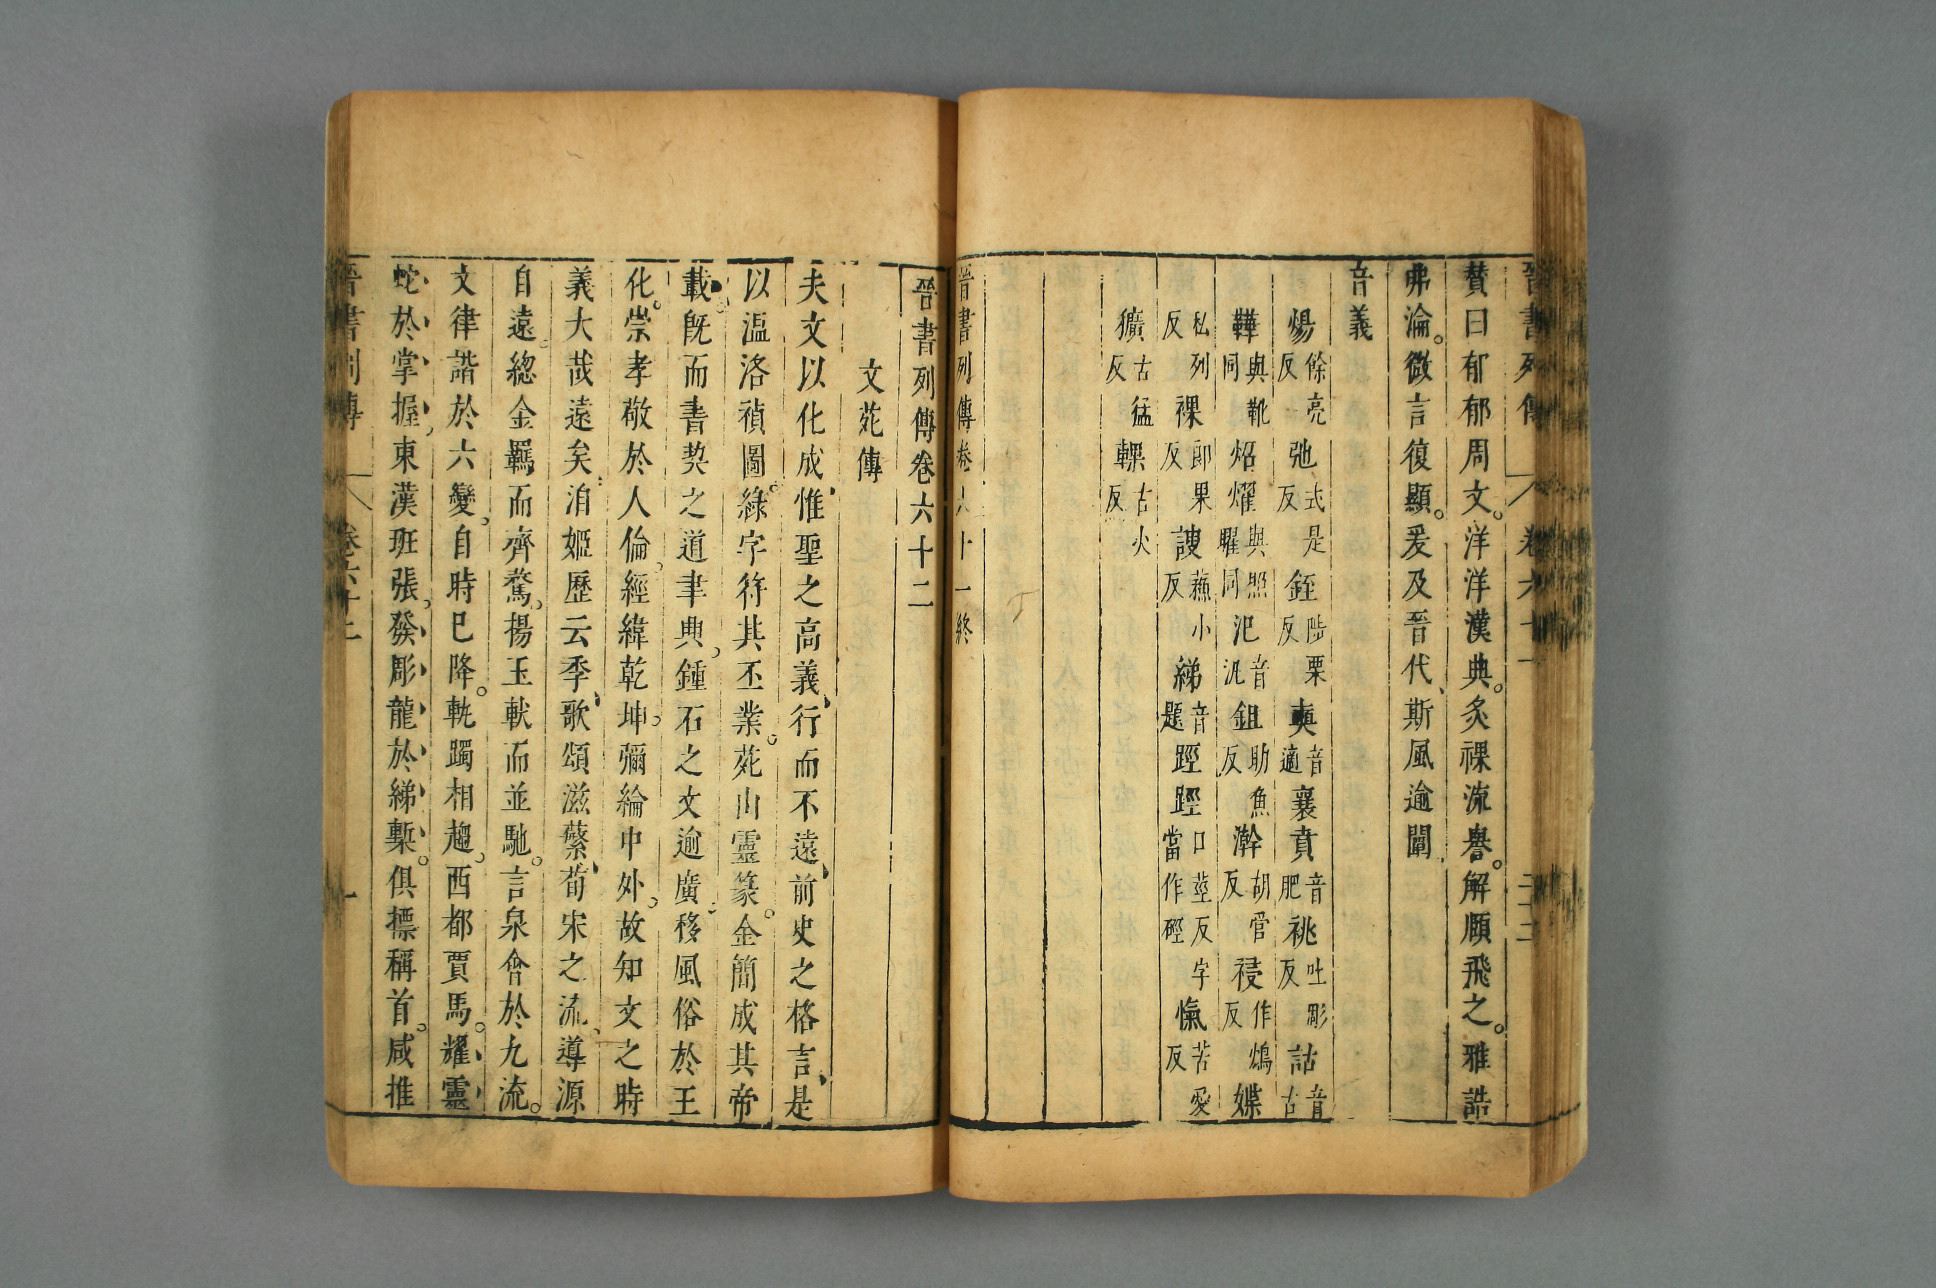 晉書列傳 卷六十一 二十二
贊曰郁郁周文。洋洋漢典。炙裸流譽。解頤飛之。雅誥
弗淪。微言復顯。爰及晉代、斯風逾闡、
音義
煬餘亮反 弛式是反 銍陟栗反 奭音適 襄賁音肥 祧吐彫反 詁音古
鞾與靴同 炤燿與照曜同 氾音汎 鉏助魚反 澣胡管反 祲作鴆反 媟
私列反 裸郎果反 謏蘇小反 綈音題 踁踁口莖反字當作硜 愾苦愛反
獷古猛反 輠古火反
晉書列傳卷六十一終
晉書列傳卷六十二
文苑傳
夫文以化成、惟聖之高義、行而不遠、前史之格言、是
以溫洛禎圖。綠字符其丕業。苑山靈篆。金簡成其帝
載。旣而書契之道聿典、鍾石之文逾廣、移風俗於王
化。崇孝敬於人倫。經緯乾坤。彌綸中外、故知文之時
義大哉遠矣、洎姬歷云季、歌頌滋蘩、荀宋之流、導源
自遠。總金羈而齊騖、揚玉軑而並馳。言泉會於九流。
文律諧於六變、自時已降。軌躅相趨、西都賈馬。耀靈
蛇於掌握、東漢班張、發彫龍於綈槧。俱摽稱首。咸推
晉書列傳 卷六十二 一